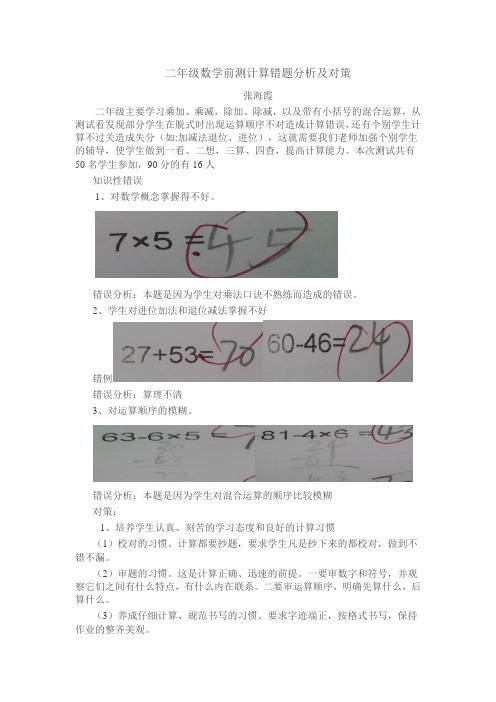 二年级数学前测计算错题分析及对策
张海霞
二年级主要学习乘加、乘减，除加、除减，以及带有小括号的混合运算，从
测试看发现部分学生在脱式时出现运算顺序不对造成计算错误，还有个别学生计
算不过关造成失分（如:加减法退位、进位），这就需要我们老师加强个别学生
的辅导，使学生做到一看、二想，三算、四查，提高计算能力。本次测试共有
50 名学生参加，90 分的有 16 人
知识性错误
1、对数学概念掌握得不好。
7×5 =45
错误分析：本题是因为学生对乘法口诀不熟练而造成的错误。
2、学生对进位加法和退位减法掌握不好
27+53=70 60-46=24
错例
错误分析：算理不清
3、对运算顺序的模糊。
63-6×5 = 81-4×6 =43
错误分析：本题是因为学生对混合运算的顺序比较模糊
对策：
1、培养学生认真、刻苦的学习态度和良好的计算习惯
（1）校对的习惯。计算都要抄题，要求学生凡是抄下来的都校对，做到不
错不漏。
（2）审题的习惯。这是计算正确、迅速的前提。一要审数字和符号，并观
察它们之间有什么特点，有什么内在联系。二要审运算顺序，明确先算什么，后
算什么。
（3）养成仔细计算、规范书写的习惯。要求字迹端正，按格式书写，保持
作业的整齐美观。